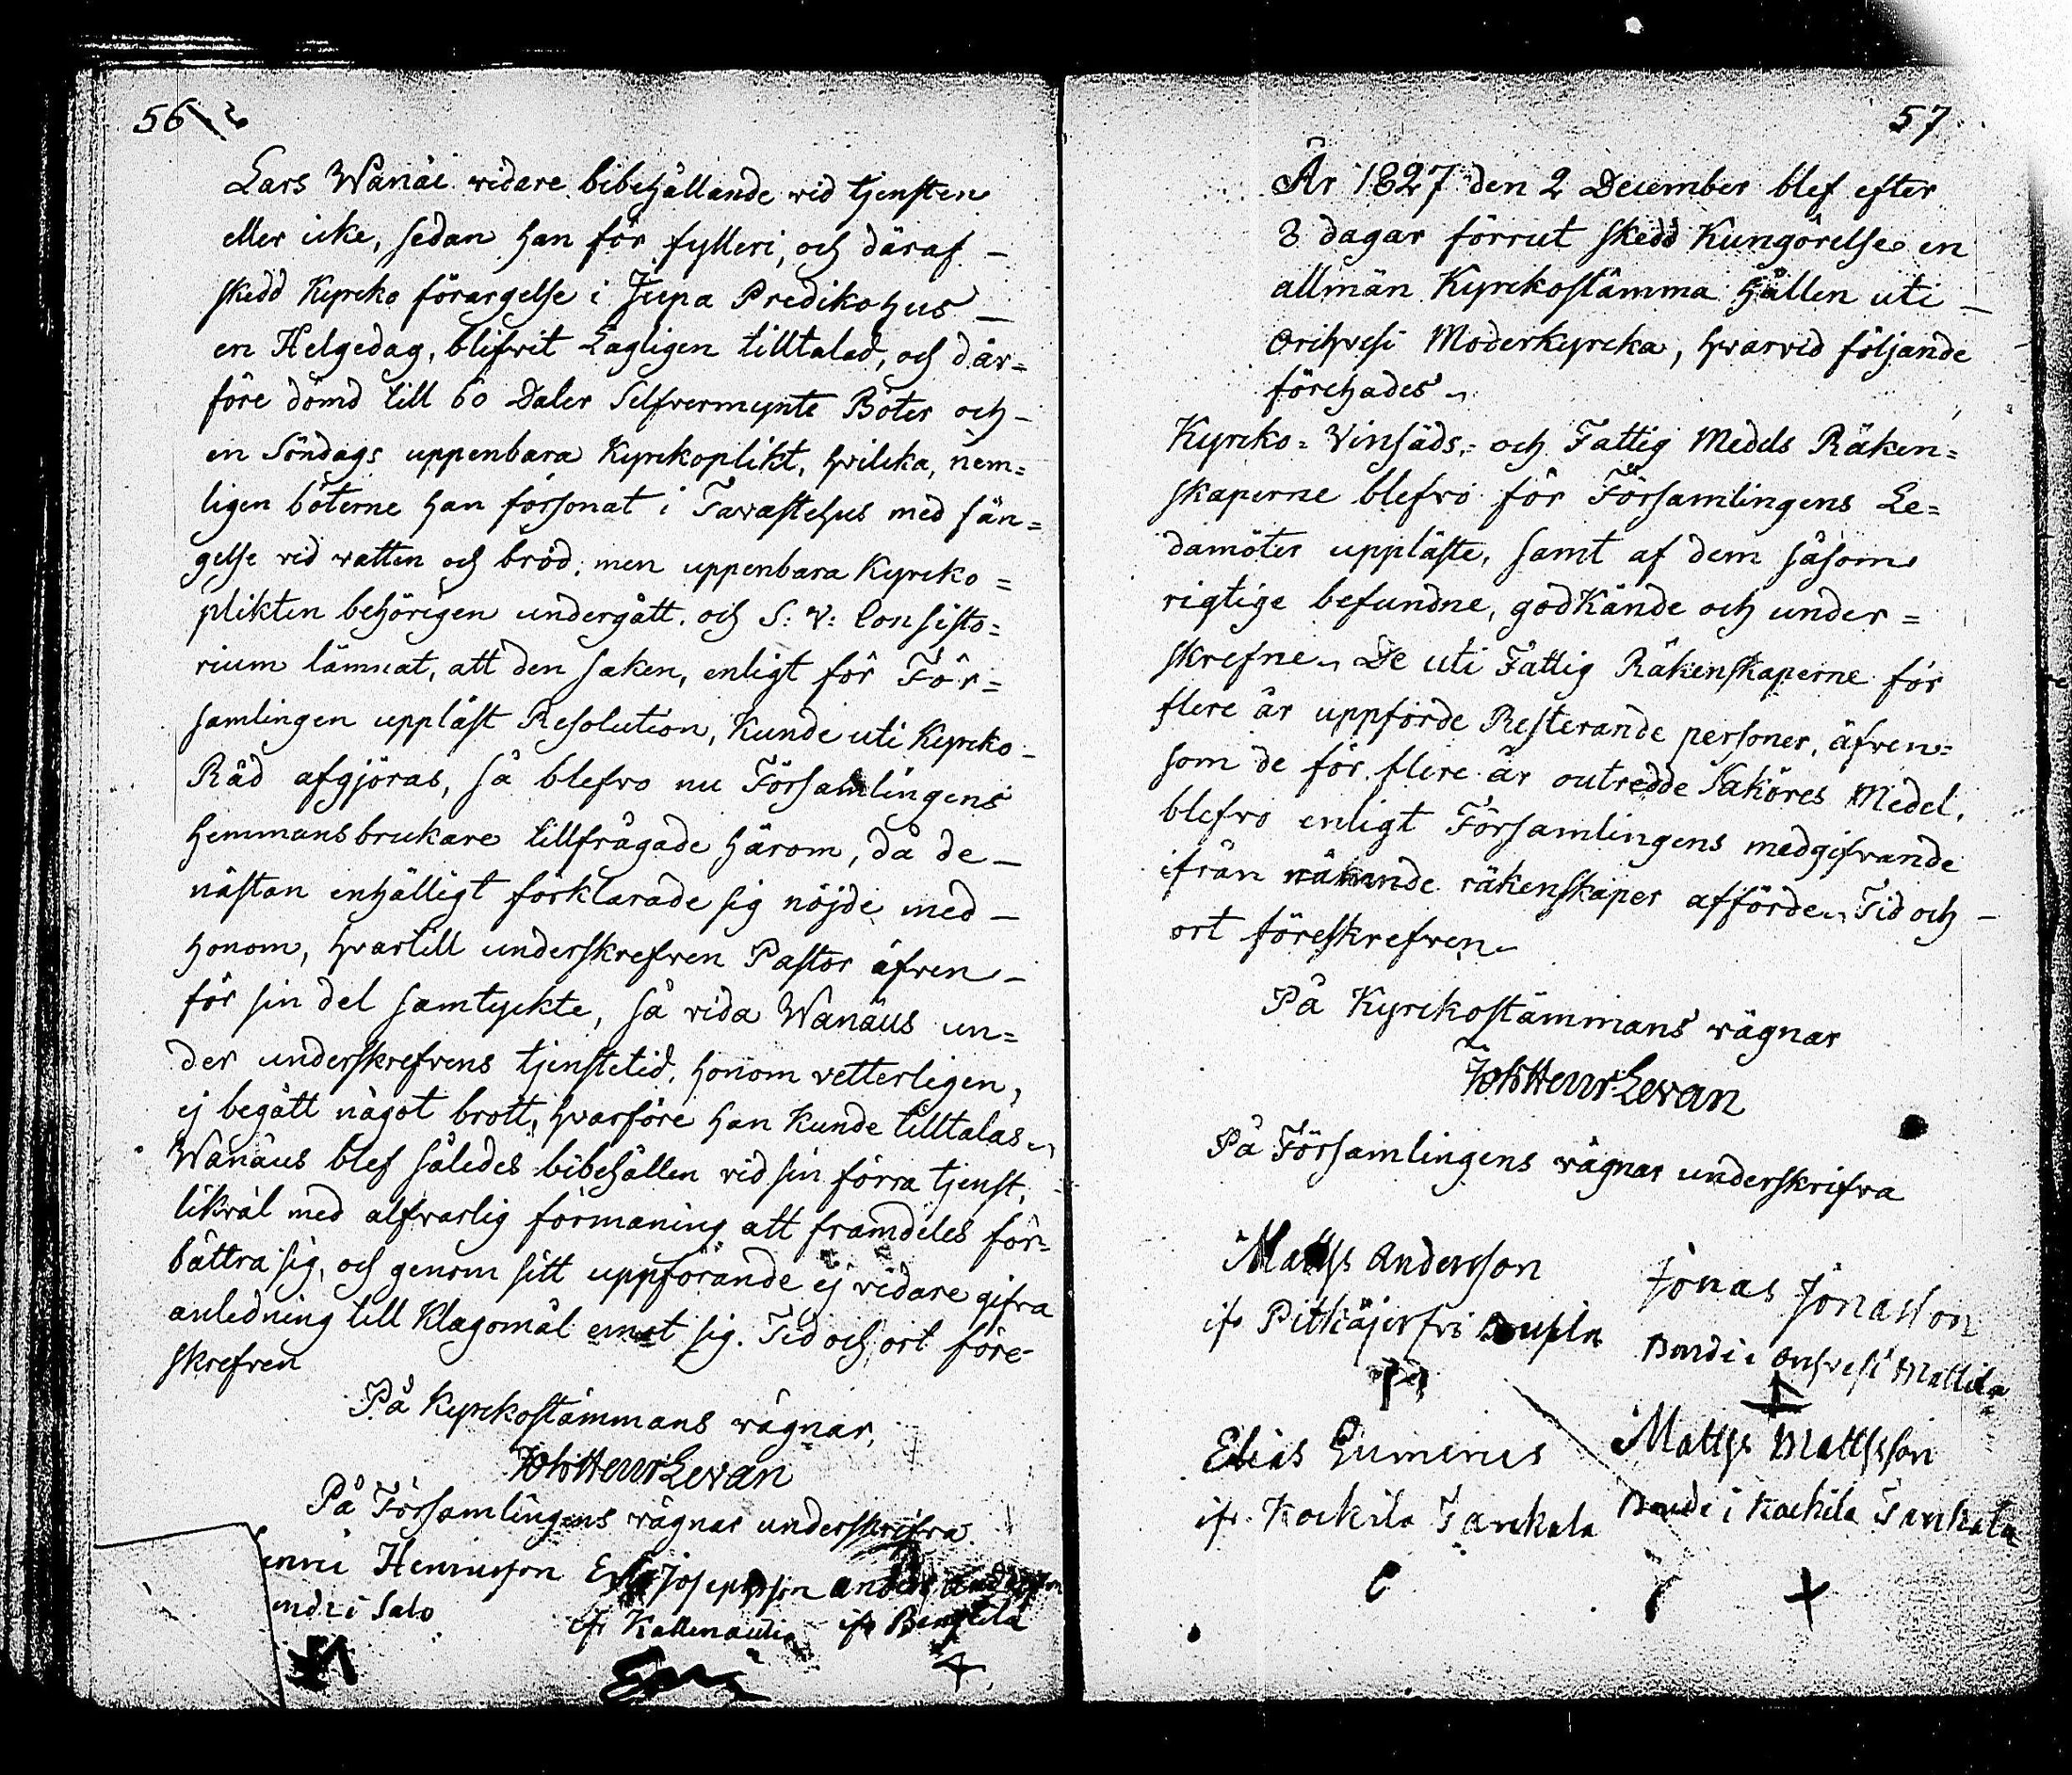 56
Lars Wanäi vidare bibehållande vid tjensten
eller icke, sedan han för fylleri, och däraf –
skedd Kyrcko förargelse i Jupa Predikohus –
en Helgedag, blifvit Lagligen tilltalad, och där=
före dömd till 60 Daler Silfvermynte Böter och –
en Söndags uppenbara Kyrckoplikt, hvilcka, nem=
ligen böterne han försonat i Tavastehus med fän=
gelse vid vatten och bröd, men uppenbara Kyrcko=
plikten behörigen undergått, och S: V: Consisto=
rium lämnat, att den saken, enligt för För=
samlingen uppläst Resolution, Kunde uti Kyrcko-
Råd afgjöras, så blefvo nu Församlingens
hemmansbrukare tillfrågade härom, då de –
nästan enhälligt förklarade sig nöjde med –
honom, hvartill underskrefven Pastor äfven –
för sin del samtyckte, så vida Wanäus un=
der underskrefvens tjenstetid, honom vetterligen,
ej begått något brott, hvarföre han Kunde tilltalas.
Wanäus blef således bibehållen vid sin förra tjenst,
likväl med alfvarlig förmaning att framdeles för=
bättra sig, och genom sitt uppförande ej vidare gifva
anledning till Klagomål emot sig. Tid och ort före-
skrefven
På Kyrckostämmans vägnar,
Joh Henr Levan
På Församlingens vägnar underskrifva
Henricsson Josephsson Anders Andersson
i Salo
ifr Bengtilä
57
År 1827 den 2 December blef efter
8 dagar förrut skedd Kungörelse en
allmän Kyrckostämma hållen uti –
Orihvesi Moderkyrcka, hvarvid följande
förehades.
Kyrcko= Vinsäds,= och Fattig Medels Räken=
skaperne blefvo för Församlingens Le=
damöter uppläste, samt af dem såsom
rigtige befundne, godkände och under=
skrefne. De uti Fattig Räkenskaperne för
flere år uppförde Resterande personer, äfven=
som de för flere år outredde Saköres Medel,
blefvo enligt Församlingens medgifvande
ifrån räkenskaper afförde. Tid och –
ort föreskrefven.
På Kyrckostämmans vägnar
Joh Henr Levan
På Församlingens vägnar underskrifva
Matts Andersson Jonas Jonasson
ifr Pitkäjerfvi Bonde i Orihvesi Mattila
Elias Gumerus Matts Mattsson
ifr Kockila Tankala Bonde i Kockila Tankala